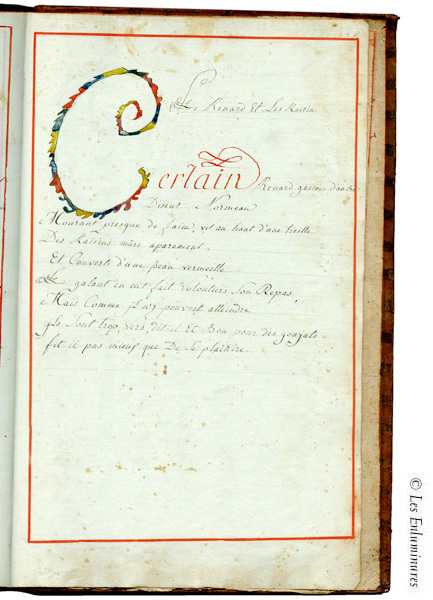 Le Renard Et Les Raisin
Certain Renard gascons dautre
Disent Normean
Mourant presque de faim, vit au haut d'une treille
Des Raisins mûrs aparament
Et Couverts d'une peau vermeille
Le galant en eut fait voloutiers Son Repas
Mais Comme il n'y pouvoit atteindre
Ils Sont trop vers, dit il Et Bon pour des goujats
fit il pas mieux que De Se plaindre
© Les Enluminures